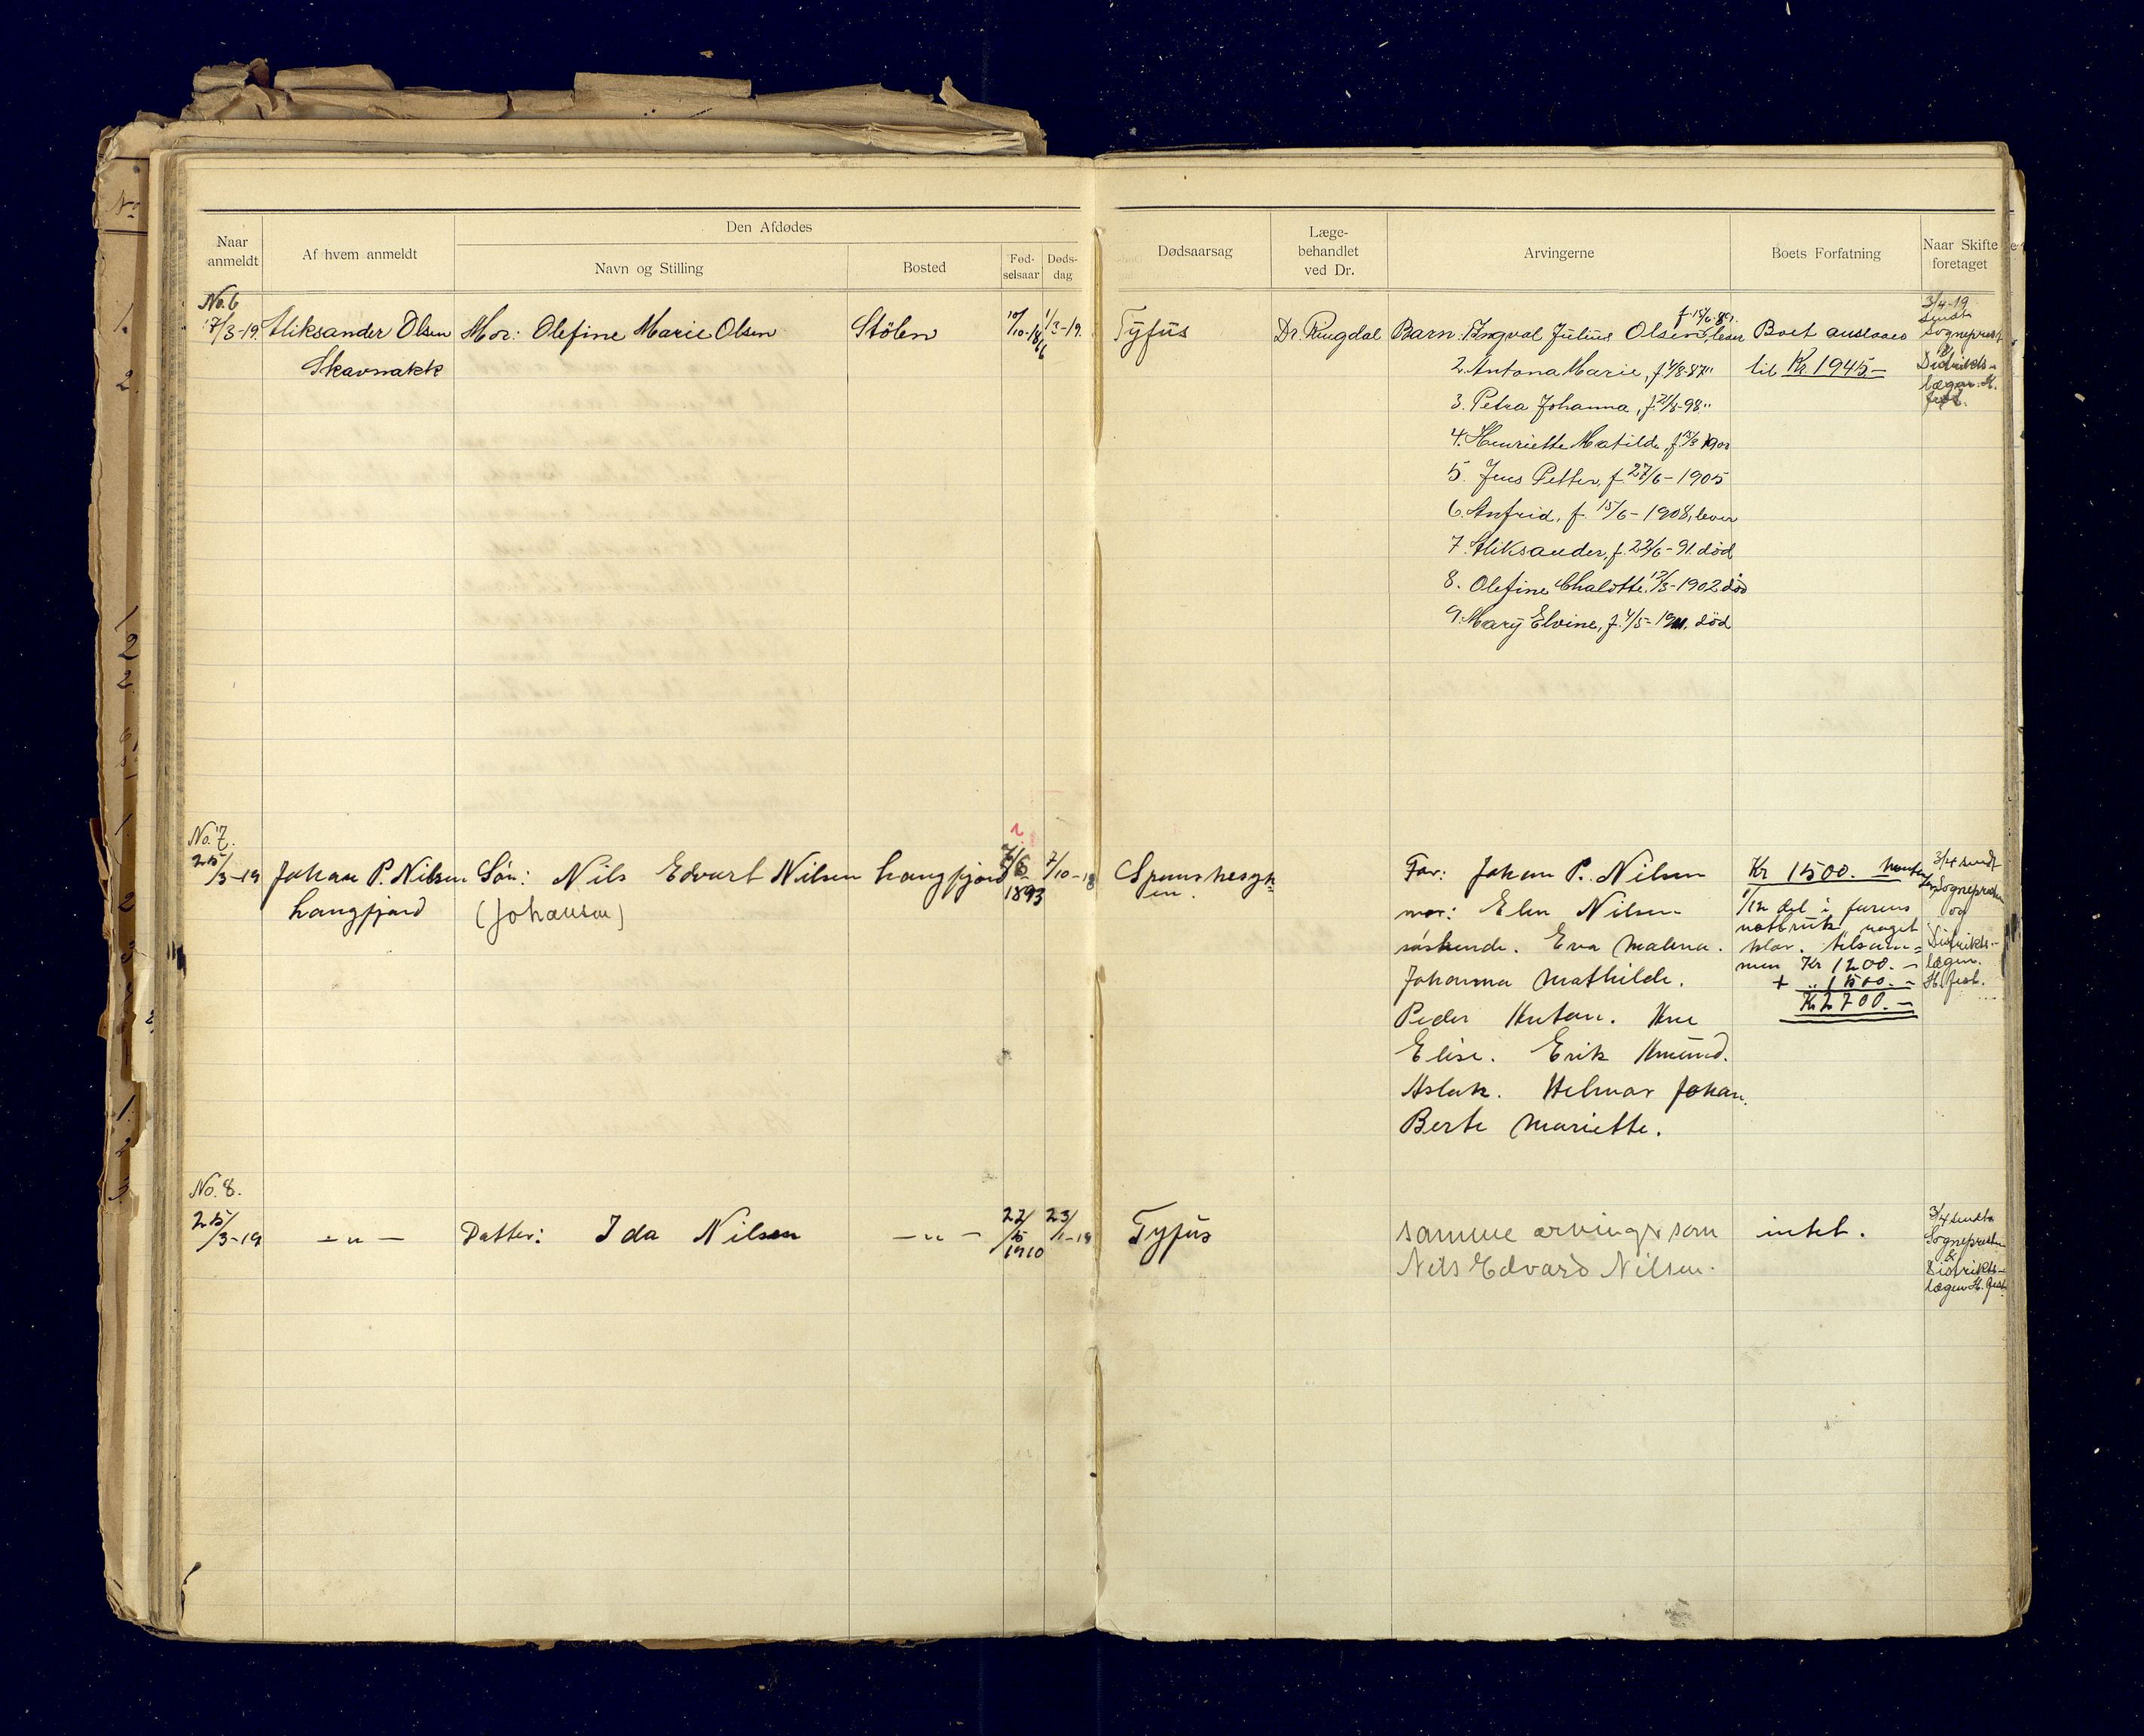 Den Afdødes
Naar anmeldt
Af hvem anmeldt
Navn og Stilling
Bosted
Fød-
selsaar
Døds-
dag
Dødsaarsag
Læge-
behandlet
ved Dr.
Arvingerne
Boets Forfatning
Naar Skifte
foretaget
No. 6
17/3-19. Aliksander Olsen Mor: Olefine Marie Olsen Stölen 10/10-1866 1/3-19. Tyfus Dr. Ringdal Barn: 1. Ingval Julius Olsen, lever Boet anslaaes
Skavnakk
2. Antona Marie, f. 4/8-87 " til Kr. 1945.-
3. Petra Johanna, f. 21/8-98 "
4. Henriette Matilde, f. 15/3 1900
5. Jens Petter, f. 27/6-1905
6. Anfrid, f. 15/6-1908, lever
7. Aliksander, f. 22/6-91. död
8. Olefine Chalotte, 12/3-1902 död
9. Mary Elvine, f. 4/5-1911, död
3/4-19
sendt
Sogneprest
&
Distrikts-
lægen. H.
fest.
No. 7.
25/3-19 Johan P. Nilsen Søn: Nils Edvart Nilsen Langfjord 5/6 1893 7/10-18 Spanskesyk
Langfjord (Johansen) en.
Far: Johan P. Nilsen Kr 1500.
mor: Elen Nilsen 1/12 del i farens
notbruk, noget
søskende. Eva Malena.
Johanna Mathilde. men Kr 1200.-
+ " 1500.-
Peder Antan. Ane Kr 2700.-
Elise. Erik Amund.
Aslak. Hilmar Johan.
Berte Mariette.
3/4 sendt
Sognepresten
og
Distrikts-
lægen.
H. fest.
No. 8.
25/3-19 - " - Datter: Ida Nilsen - " - 22/5 1910 23/1-19 Tyfus samme arvinger som intet.
Nils Edvard Nilsen.
3/4 sendt
Sognepresten
&
Distrikts-
lægen H. fest.